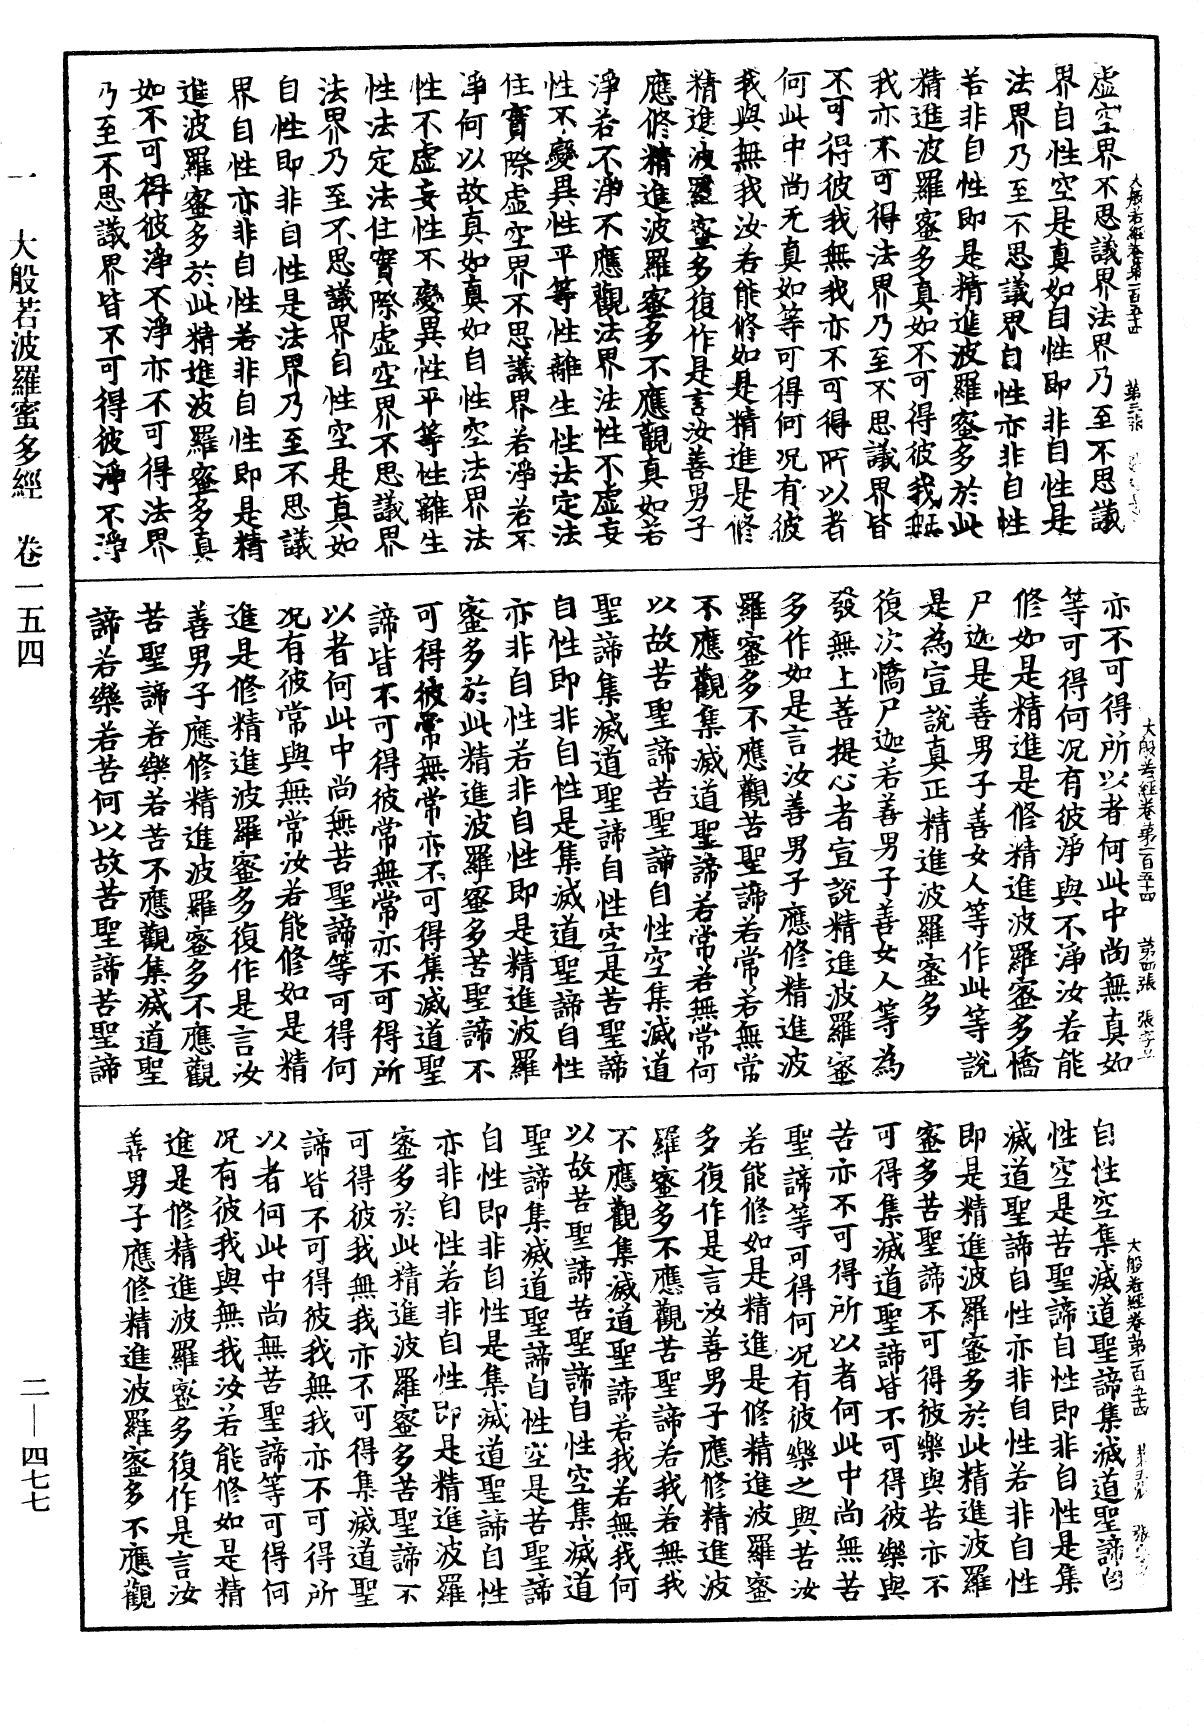 大般若經卷第一百五十四 第三張
虛空界不思議界法界乃至不思議
界自性空是真如自性即非自性是
法界乃至不思議界自性亦非自性
若非自性即是精進波羅蜜多於此
精進波羅蜜多真如不可得彼我無
我亦不可得法界乃至不思議界皆
不可得彼我無我亦不可得所以者
何此中尚无真如等可得何況有彼
我與無我汝若能修如是精進是修
精進波羅蜜多復作是言汝善男子
應修精進波羅蜜多不應觀真如若
淨若不淨不應觀法界法性不虛妄
性不變異性平等性離生性法定法
住實際虛空界不思議界若淨若不
淨何以故真如真如自性空法界法
性不虛妄性不變異性平等性離生
性法定法住實際虛空界不思議界
法界乃至不思議界自性空是真如
自性即非自性是法界乃至不思議
界自性亦非自性若非自性即是精
進波羅蜜多於此精進波羅蜜多真
如不可得彼淨不淨亦不可得法界
乃至不思議界皆不可得彼淨不淨
大般若經卷第一百五十四 第四張
亦不可得所以者何此中尚無真如
等可得何況有彼淨與不淨汝若能
修如是精進是修精進波羅蜜多憍
尸迦是善男子善女人等作此等說
是為宣說真正精進波羅蜜多
復次憍尸迦若善男子善女人等為
發無上菩提心者宣說精進波羅蜜
多作如是言汝善男子應修精進波
羅蜜多不應觀苦聖諦若常若無常
不應觀集滅道聖諦若常若無常何
以故苦聖諦苦聖諦自性空集滅道
聖諦集滅道聖諦自性空是苦聖諦
自性即非自性是集滅道聖諦自性
亦非自性若非自性即是精進波羅
蜜多於此精進波羅蜜多苦聖諦不
可得彼常無常亦不可得集滅道聖
諦皆不可得彼常無常亦不可得所
以者何此中尚無苦聖諦等可得何
況有彼常與無常汝若能修如是精
進是修精進波羅蜜多復作是言汝
善男子應修精進波羅蜜多不應觀
苦聖諦若樂若苦不應觀集滅道聖
諦若樂若苦何以故苦聖諦苦聖諦
大般若經卷第一百五十四
自性空集滅道聖諦集滅道聖諦自
性空是苦聖諦自性即非自性是集
滅道聖諦自性亦非自性若非自性
即是精進波羅蜜多於此精進波羅
蜜多苦聖諦不可得彼樂與苦亦不
可得集滅道聖諦皆不可得彼樂與
苦亦不可得所以者何此中尚無苦
聖諦等可得何況有彼樂之與苦汝
若能修如是精進是修精進波羅蜜
多復作是言汝善男子應修精進波
羅蜜多不應觀苦聖諦若我若無我
不應觀集滅道聖諦若我若無我何
以故苦聖諦苦聖諦自性空集滅道
聖諦集滅道聖諦自性空是苦聖諦
自性即非自性是集滅道聖諦自性
亦非自性若非自性即是精進波羅
蜜多於此精進波羅蜜多苦聖諦不
可得彼我無我亦不可得集滅道聖
諦皆不可得彼我無我亦不可得所
以者何此中尚無苦聖諦等可得何
況有彼我與無我汝若能修如是精
進是修精進波羅蜜多復作是言汝
善男子應修精進波羅蜜多不應觀
一 大般若波羅蜜多經 卷一五四
二—四七七